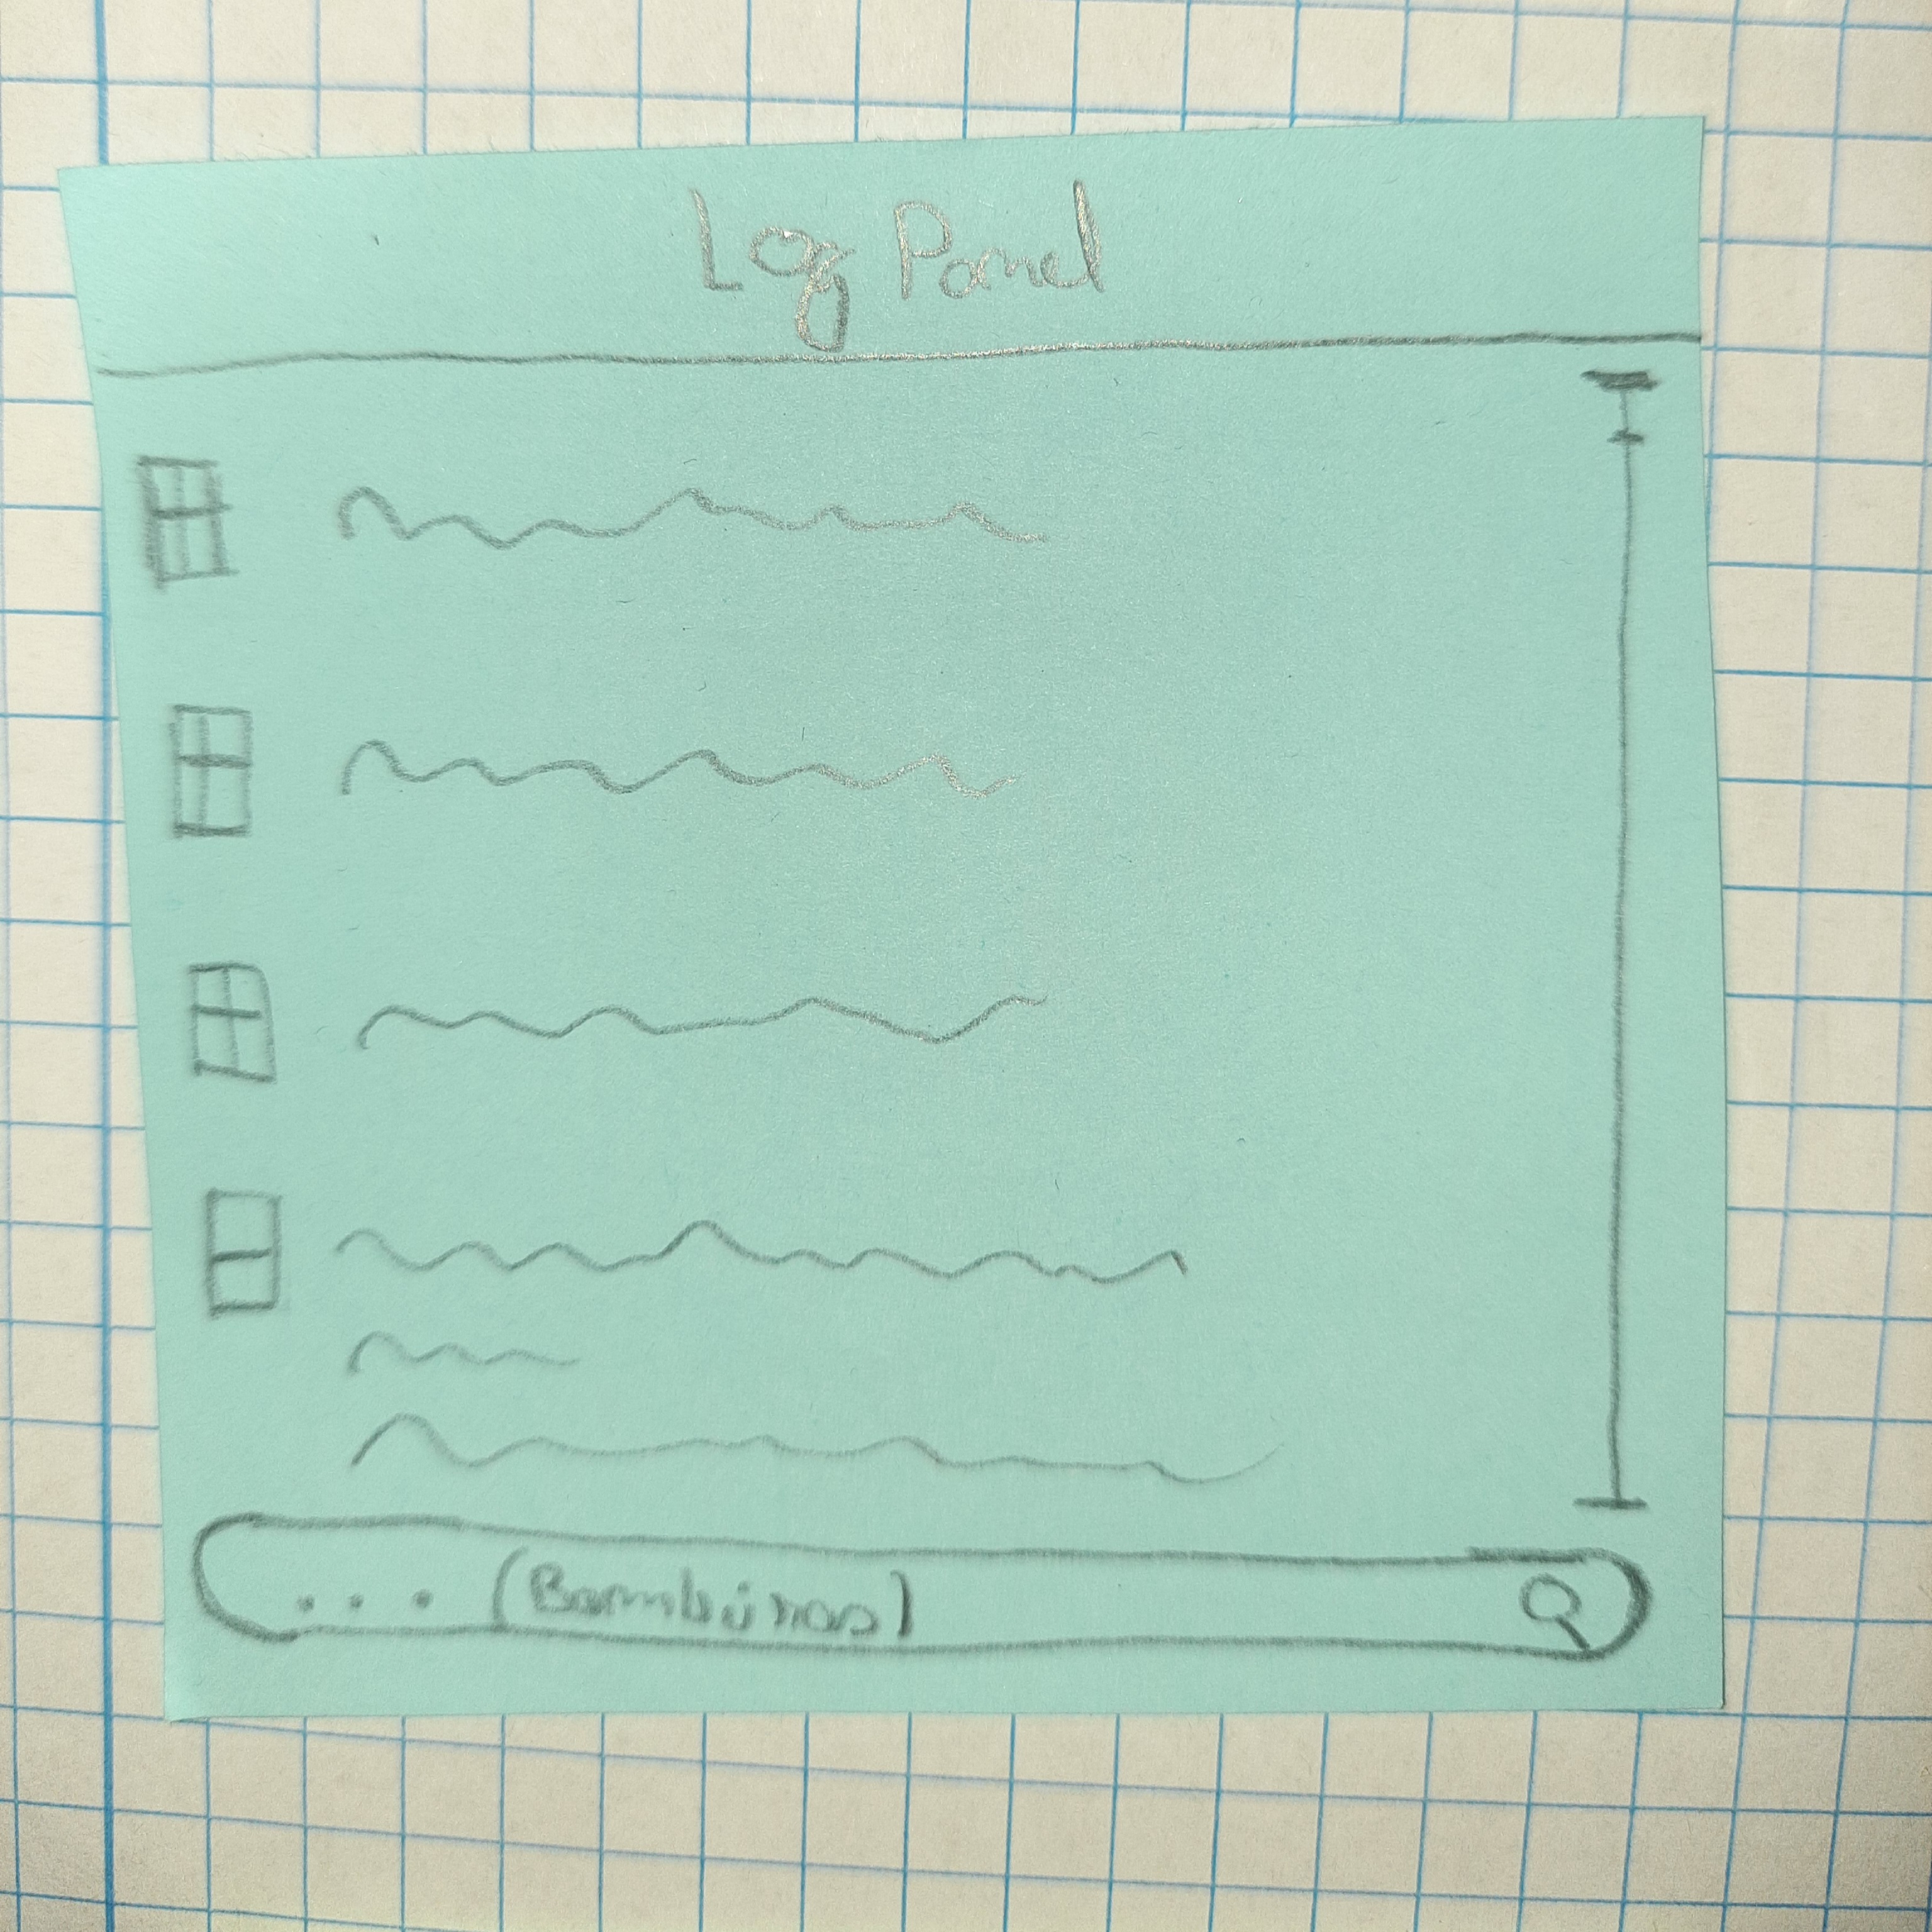 Log Panel
... (Bambúras)